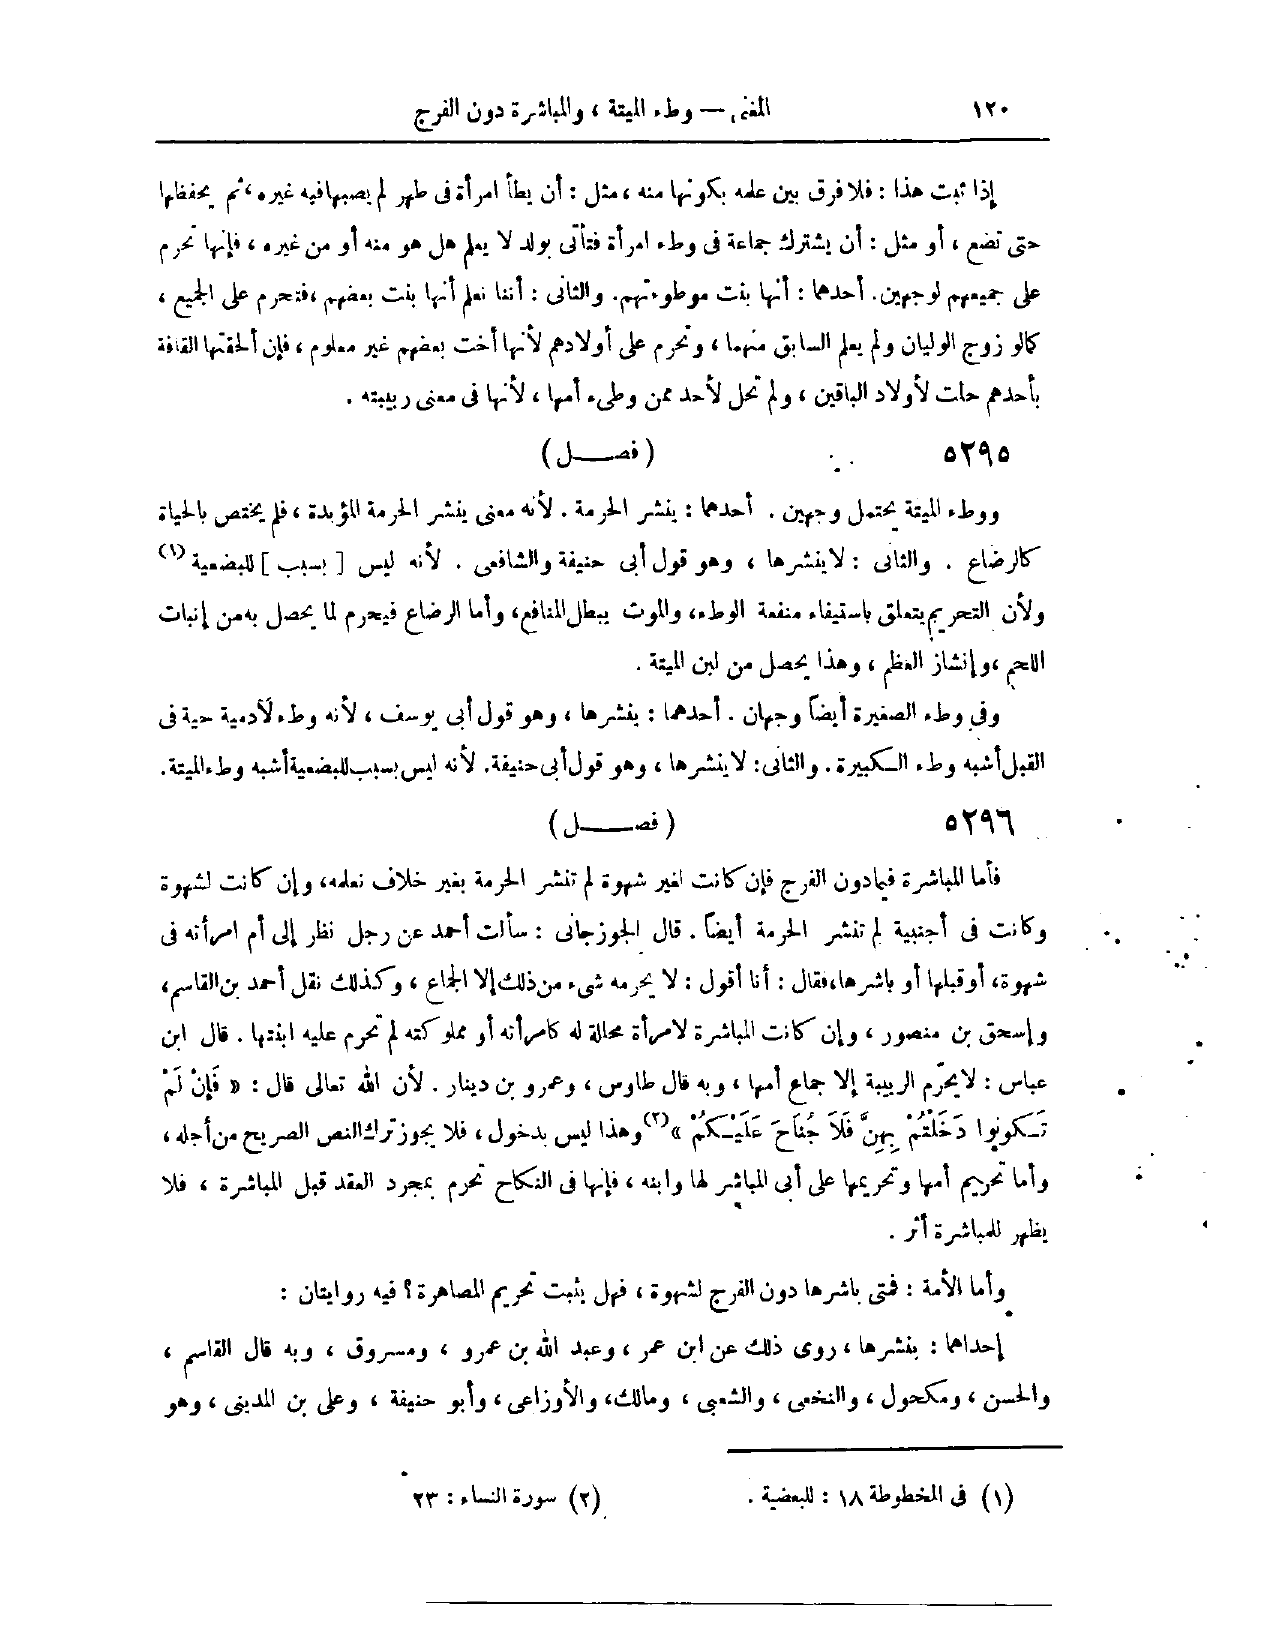 ١٢٠ المغنى — وطء الميتة ، والمباشرة دون الفرج
إذا ثبت هذا : فلا فرق بين علمه بكونها منه ، مثل : أن يطأ امرأة فى طهر لم يصبها فيه غيره ، ثم يحفظها
حتى تضع ، أو مثل : أن يشترك جماعة فى وطء امرأة فتأتى بولد لا يعلم هل هو منه أو من غيره ، فإنها تحرم
على جميعهم لوجهين . أحدها : أنها بنت موطوءتهم . والثانى : أننا نعلم أنها بنت بعضهم ، فتحرم على الجميع ،
كالو زوج الوليان ولم يعلم السابق منهما ، وتحرم على أولادهم لأنها أخت بعضهم غير معلوم ، فإن ألحقتها القافة
بأحدهم حلت لأولاد الباقين ، ولم تحل لأحد ممن وطىء أمها ، لأنها فى معنى ربيبته .
٥٢٩٥ ( فصــــل )
ووطء الميتة يحتمل وجهين . أحدها : ينشر الحرمة . لأنه معنى ينشر الحرمة المؤبدة ، فلم يختص بالحياة
كالرضاع . والثانى : لا ينشرها ، وهو قول أبى حنيفة والشافعى . لأنه ليس [ بسبب ] للبضعية (١)
ولأن التحريم يتعلق باستيفاء منفعة الوطء ، والموت يبطل المنافع ، وأما الرضاع فيحرم لما يحصل به من إنبات
اللحم ، وإنشاز العظم ، وهذا يحصل من لبن الميتة .
وفى وطء الصغيرة أيضاً وجهان . أحدهما : ينشرها ، وهو قول أبى يوسف ، لأنه وطء لآدمية حية فى
القبل أشبه وطء الكبيرة . والثانى : لا ينشرها ، وهو قول أبى حنيفة . لأنه ليس بسبب للبضعية أشبه وطء الميتة .
٥٢٩٦ ( فصــــل )
فأما المباشرة فيما دون الفرج فإن كانت لغير شهوة لم تنشر الحرمة بغير خلاف نعلمه ، وإن كانت لشهوة
وكانت فى أجنبية لم تنشر الحرمة أيضاً . قال الجوزجانى : سألت أحمد عن رجل نظر إلى أم امرأته فى
شهوة ، أو قبلها أو باشرها ، فقال : أنا أقول : لا يحرمه شىء من ذلك إلا الجماع ، وكذلك نقل أحمد بن القاسم ،
وإسحق بن منصور ، وإن كانت المباشرة لامرأة محللة له كامرأته أو مملوكته لم تحرم عليه ابنتها . قال ابن
عباس : لا يحرّم الربيبة إلا جماع أمها ، وبه قال طاوس ، وعمرو بن دينار . لأن الله تعالى قال : « فَإِنْ لَمْ
تَكُونُوا دَخَلْتُمْ بِهِنَّ فَلَا جُنَاحَ عَلَيْكُمْ » (٢) وهذا ليس بدخول ، فلا يجوز ترك النص الصريح من أجله ،
وأما تحريم أمها وتحريمها على أبى المباشر لها وابنه ، فإنها فى النكاح تحرم بمجرد العقد قبل المباشرة ، فلا
يظهر للمباشرة أثر .
وأما الأمة : فمتى باشرها دون الفرج لشهوة ، فهل يثبت تحريم المصاهرة ؟ فيه روايتان :
إحداها : ينشرها ، روى ذلك عن ابن عمر ، وعبد الله بن عمرو ، ومسروق ، وبه قال القاسم ،
والحسن ، ومكحول ، والنخعى ، والشعبى ، ومالك ، والأوزاعى ، وأبو حنيفة ، وعلى بن المدينى ، وهو
(١) فى المخطوطة ١٨ : للبعضية . (٢) سورة النساء : ٢٣